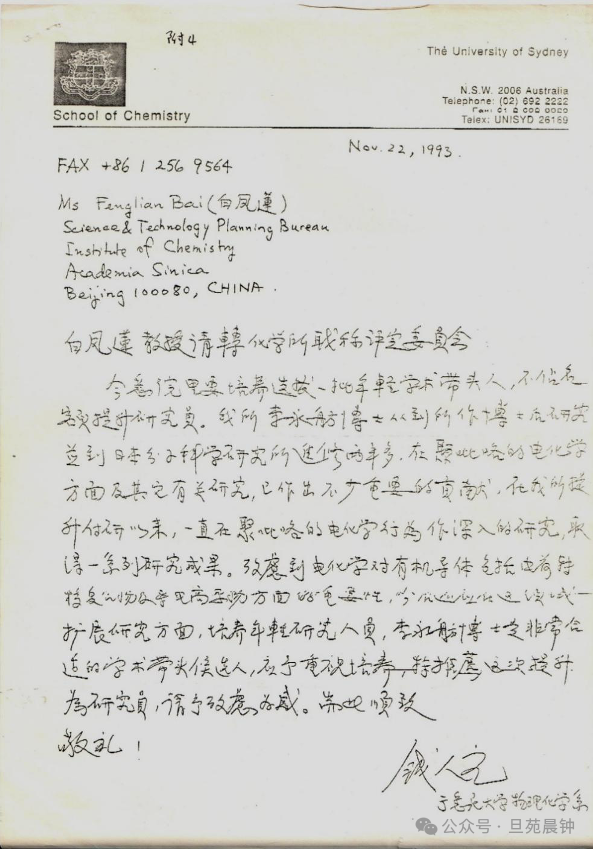 附4
The University of Sydney
N.S.W. 2006 Australia
Telephone: (02) 692 2222
Telex: UNISYD 26169
School of Chemistry
Nov. 22, 1993.
FAX +86 1 256 9564
Ms Fenglian Bai (白凤莲)
Science & Technology Planning Bureau
Institute of Chemistry
Academia Sinica
Beijing 100080, CHINA.
白凤莲教授请轉化学所职称评定委员会
今悉院里要培养选拔一批年轻学术带头人,不佔名
额提升研究员。我所李永舫博士从到所作博士后研究
並到日本分子科学研究所进修两年多,在聚吡咯的电化学
方面及其它有关研究,已作出不少重要的貢献,在我所提
升付研以来,一直在聚吡咯的电化学行為作深入的研究,取
得一系列研究成果。攷慮到电化学对有机导体包括电荷转
移复合物及导电高聚物方面的重要性,
扩展研究方面,培养年轻研究人员,李永舫博士是非常合
适的学术带头候选人,应予重视培养,特推薦这次提升
為研究员,请予攷慮為感。耑此順致
敬礼!
钱人元
于悉尼大学物理化学系
公众号·旦苑晨钟